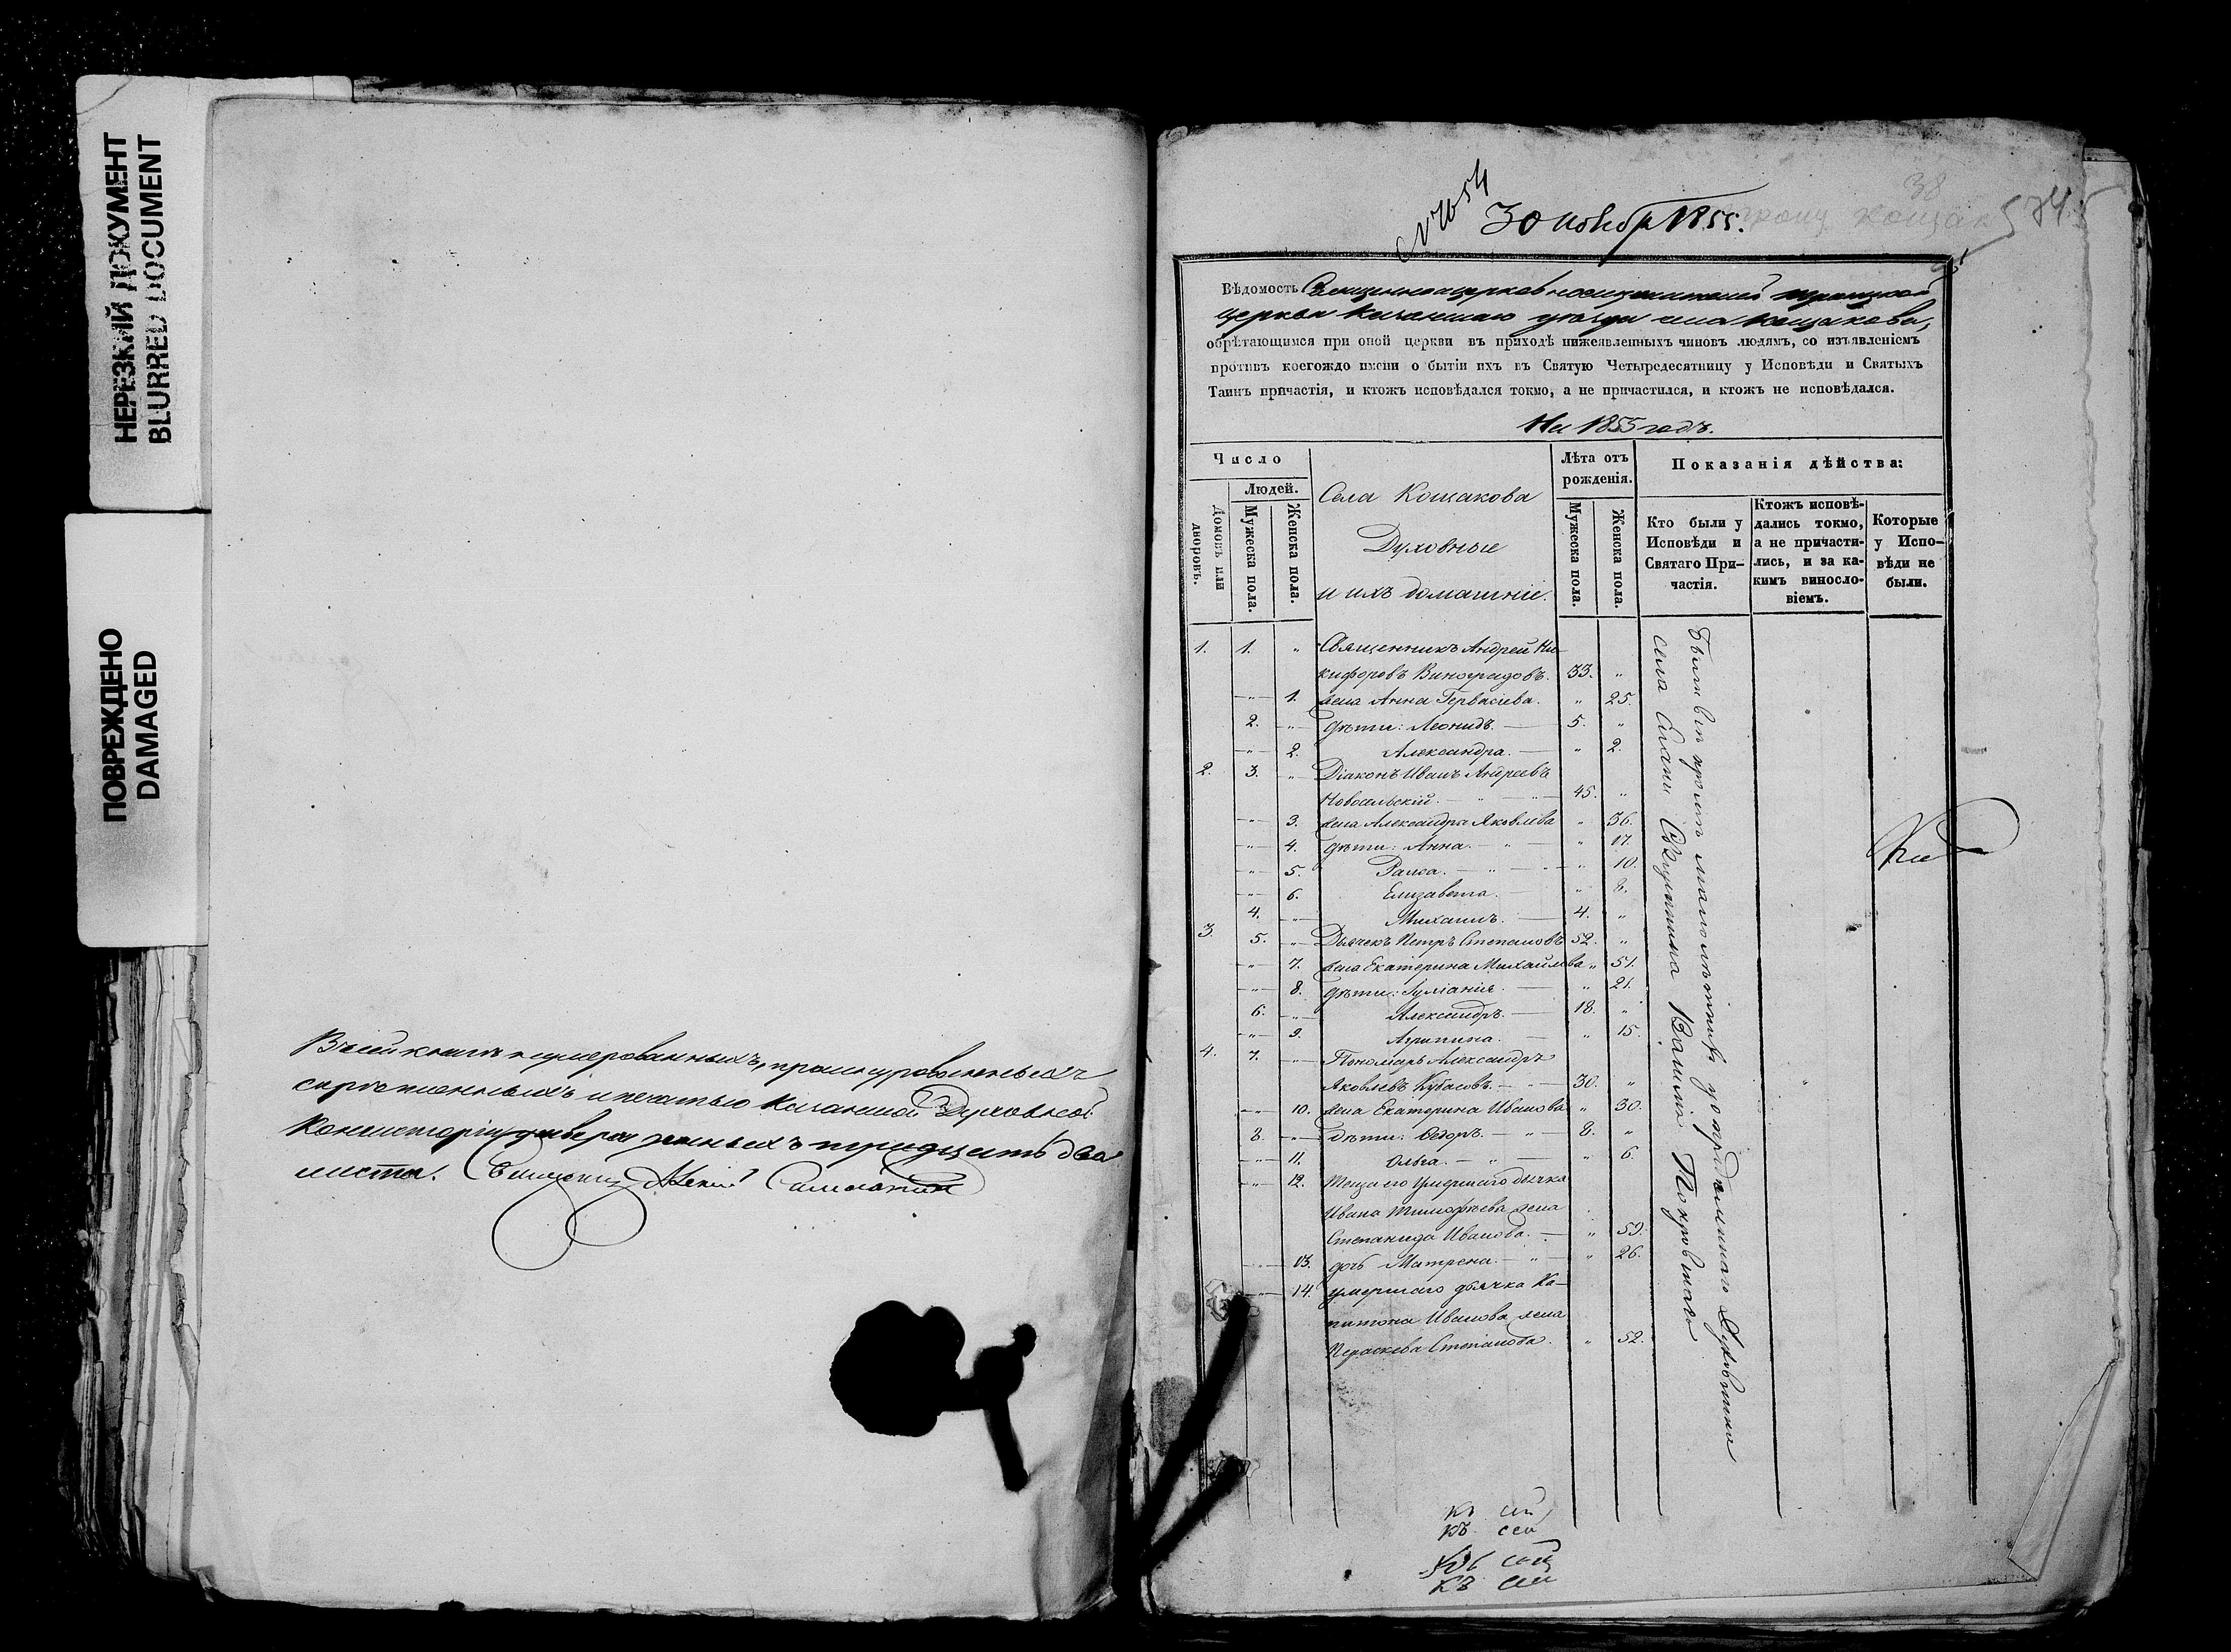 НЕРЕЗКИЙ ДОКУМЕНТ
BLURRED DOCUMENT
ПОВРЕЖДЕНО
DAMAGED
Въ сей книгѣ нумерованныхъ, прошнурованныхъ
скрѣпленныхъ и печатью Казанской Духовной
Консисторіи утвержденныхъ тридцать два
листа.
№ 1654
30 ноября 1855.
38
Кощак
574
Вѣдомость Священноцерковнослужителей Троицкой
церкви Казанскаго уѣзда села Кощакова,
обрѣтающимся при оной церкви въ приходѣ нижеявленныхъ чиновъ людямъ, со изъявленіемъ
противъ коегождо имени о бытіи ихъ въ Святую Четыредесятницу у Исповѣди и Святыхъ
Таинъ причастія, и ктожъ исповѣдался токмо, а не причастился, и ктожъ не исповѣдался.
На 1855 годъ.
Число
Людей.
Домовъ или дворовъ.
Мужеска пола.
Женска пола.
Села Кощакова
Духовные
и ихъ домашніе.
Лѣта отъ рожденія.
Мужеска пола.
Женска пола.
Показанія дѣйства:
Кто были у Исповѣди и Святаго Причастія.
Ктожъ исповѣдались токмо, а не причастились, и за какимъ винословіемъ.
Которые у Исповѣди не были.
1. 1. „ Священникъ Андрей Ни-
кифоровъ Виноградовъ. 33. „
„ 1. жена Анна Гервасіева. „ 25.
2. „ дѣти: Леонидъ. 5. „
„ 2. Александра. „ 2.
2. 3. „ Діаконъ Иванъ Андреевъ
Новосельскій. 45. „
„ 3. жена Александра Яковлева „ 36.
„ 4. дѣти: Анна. „ 17.
„ 5. Раиса. „ 10.
„ 6. Елизавета. „ 8.
4. „ Михаилъ. 4. „
3. 5. „ Дьячекъ Петръ Степановъ 52. „
„ 7. жена Екатерина Михайлова „ 51.
„ 8. дѣти: Іуліанія. „ 21.
6. „ Александръ. 18. „
„ 9. Агрипина. „ 15.
4. 7. „ Пономарь Александръ
Яковлевъ Кубасовъ. 30. „
„ 10. жена Екатерина Иванова „ 30.
8. „ дѣти: Ѳедоръ. 8. „
„ 11. Ольга. „ 6.
„ 12. Теща его умершаго дьячка
Ивана Тимофѣева жена
Степанида Иванова. „ 59.
„ 13. дочь Матрена. „ 26.
„ 14. умершаго дьячка Ка-
питона Иванова жена
Параскева Степанова. „ 52.
Были всѣ кромѣ малолѣтнихъ у опредѣленнаго Духовника
села Священника Василія Покровскаго
къ сей
къ сей
къ сей
къ сей